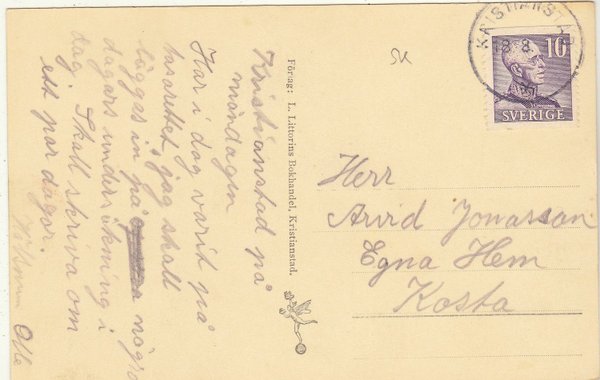 Kristianstad på
måndagen
Har i dag varit på
lasarettet, jag skall
läggas in på några
dagars undersökning i
dag. Skall skriva om
ett par dagar.
Olle
Förlag: L. Littorins Bokhandel, Kristianstad.
SK
KRISTIANSTAD
8. 8.
10
SVERIGE
Herr
Arvid Jonasson
Egna Hem
Kosta